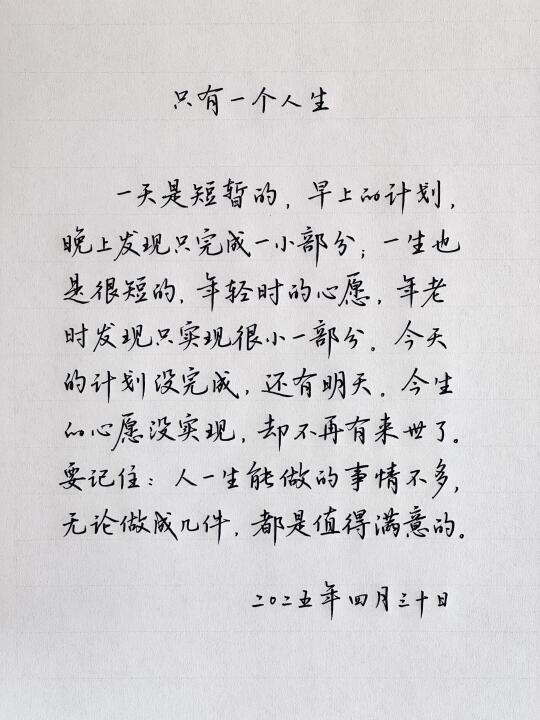 只有一个人生
一天是短暂的，早上的计划，
晚上发现只完成一小部分；一生也
是很短的，年轻时的心愿，年老
时发现只实现很小一部分。今天
的计划没完成，还有明天。今生
的心愿没实现，却不再有来世了。
要记住：人一生能做的事情不多，
无论做成几件，都是值得满意的。
二〇二五年四月三十日